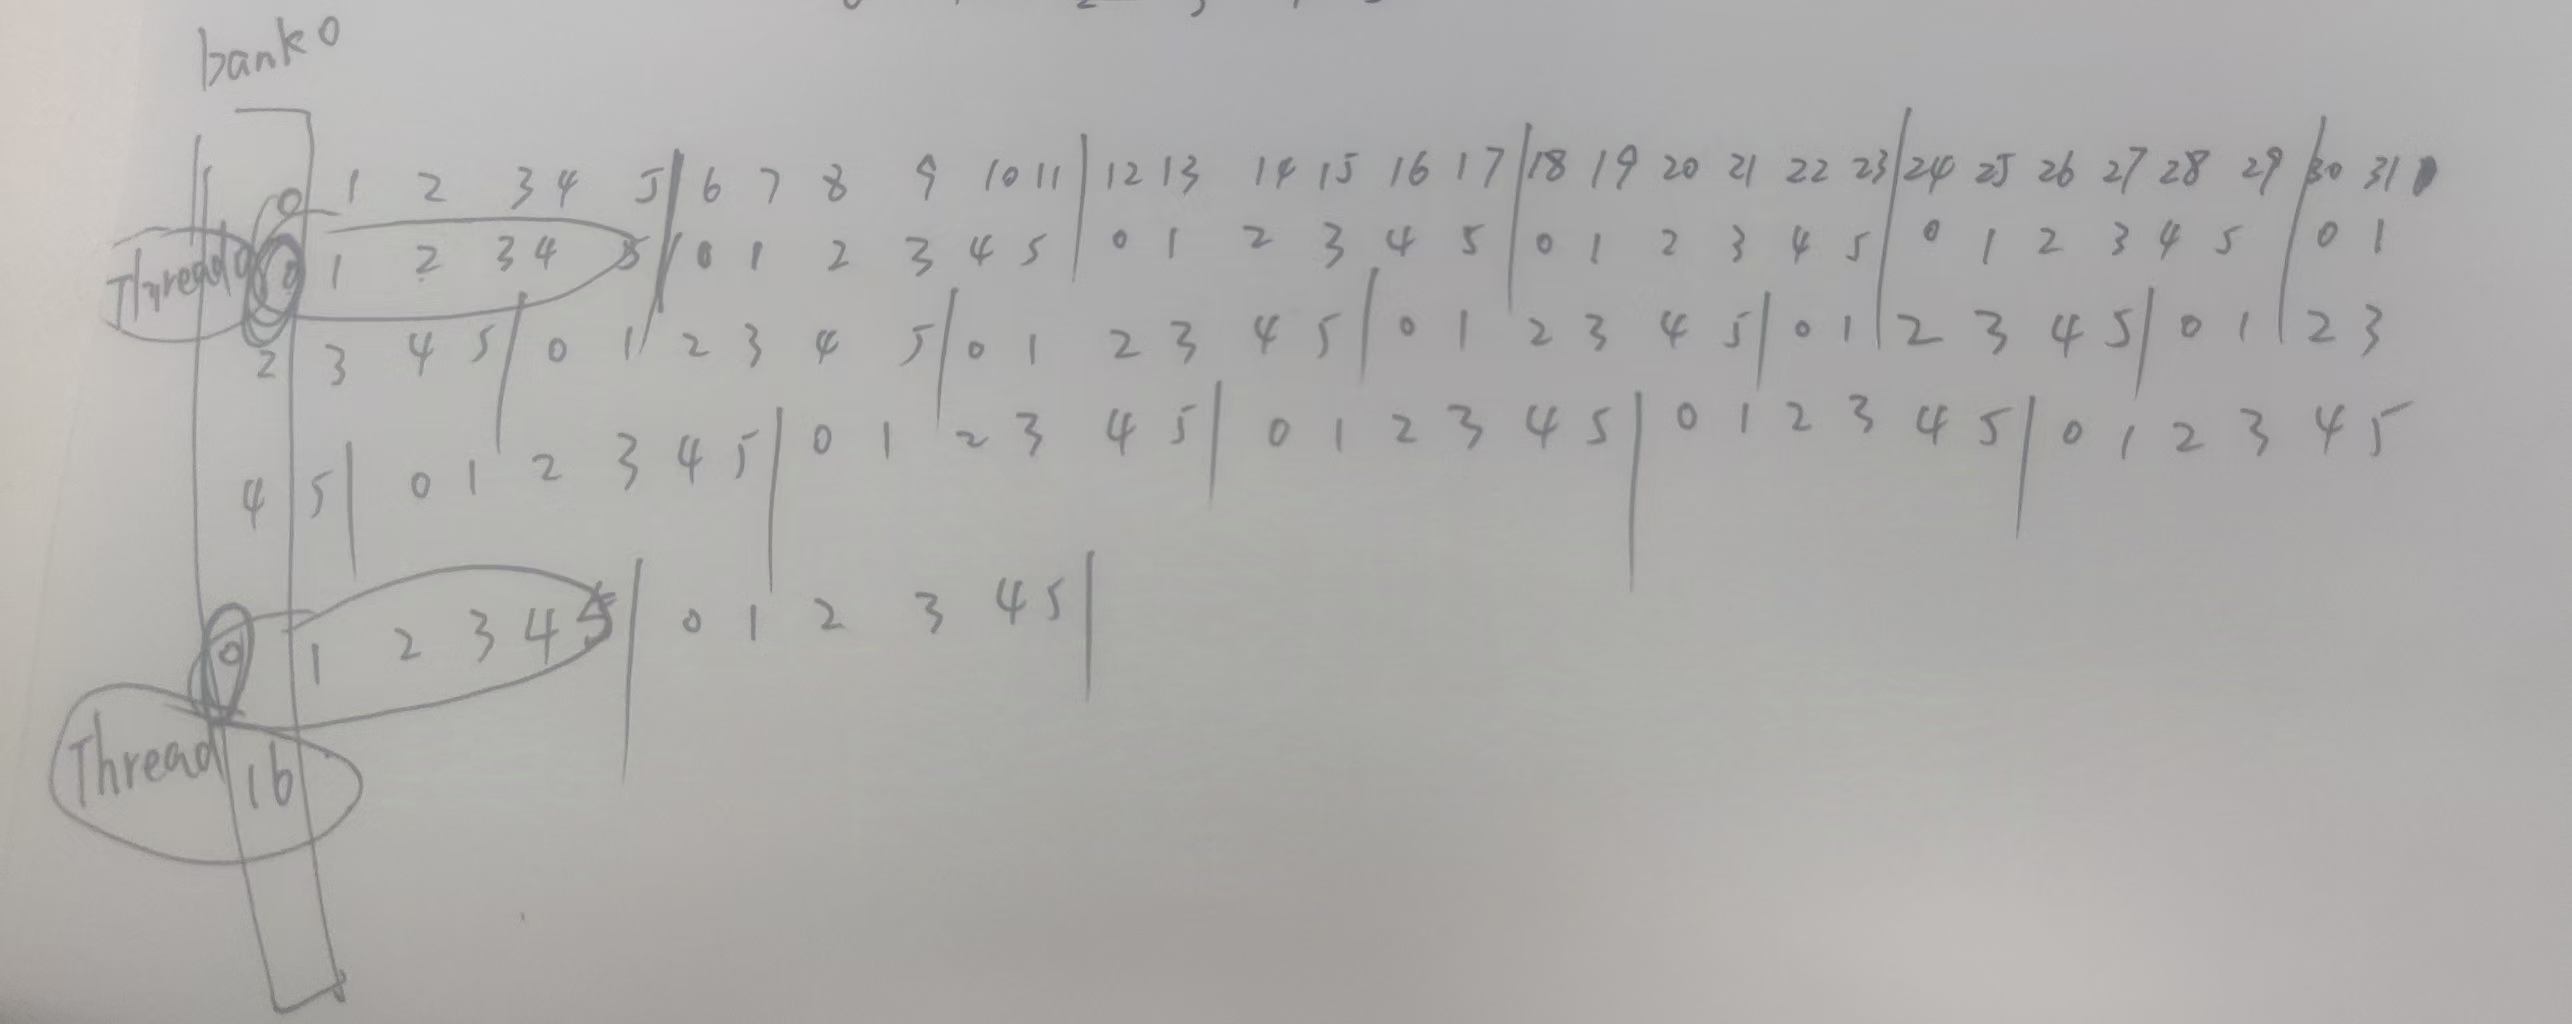 bank 0
0 1 2 3 4 5 | 6 7 8 9 10 11 | 12 13 14 15 16 17 | 18 19 20 21 22 23 | 24 25 26 27 28 29 | 30 31
Thread 0 0 1 2 3 4 5 | 0 1 2 3 4 5 | 0 1 2 3 4 5 | 0 1 2 3 4 5 | 0 1 2 3 4 5 | 0 1
2 3 4 5 | 0 1 2 3 4 5 | 0 1 2 3 4 5 | 0 1 2 3 4 5 | 0 1 2 3 4 5 | 0 1 2 3
4 5 | 0 1 2 3 4 5 | 0 1 2 3 4 5 | 0 1 2 3 4 5 | 0 1 2 3 4 5 | 0 1 2 3 4 5
0 1 2 3 4 5 | 0 1 2 3 4 5 |
Thread 16